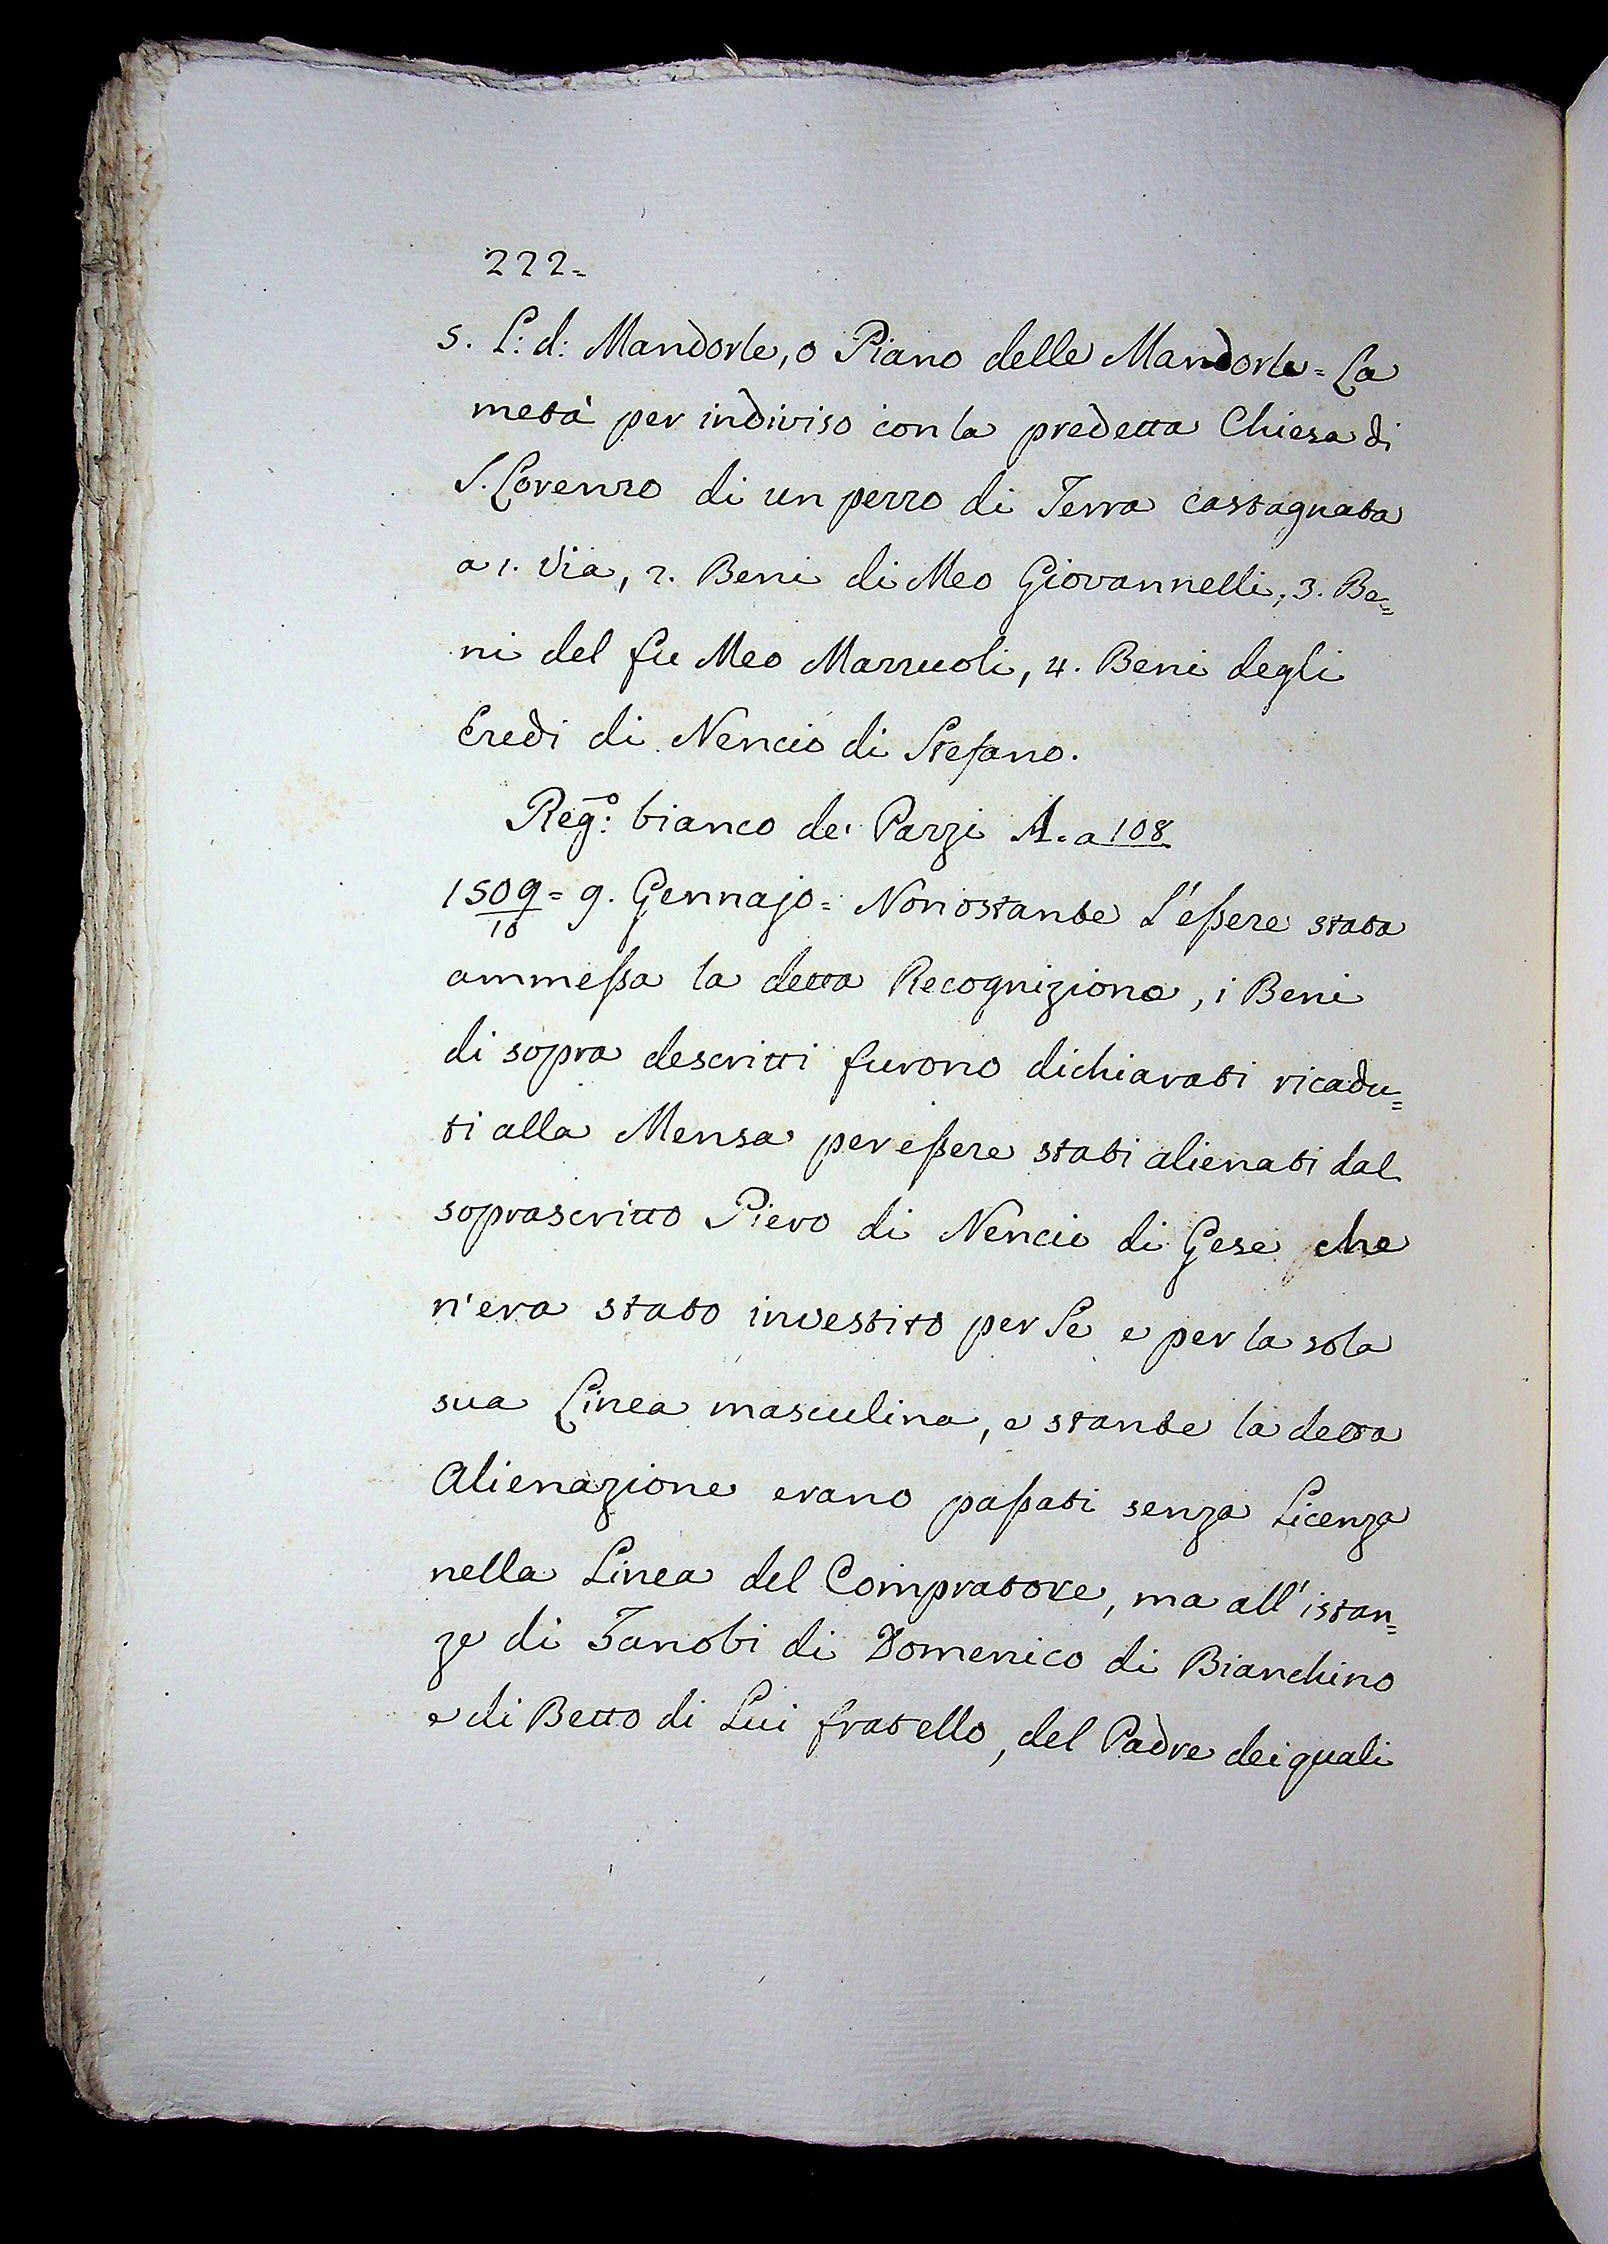 222=
5. L: d: Mandorle, o Piano delle Mandorle = La
metà per indiviso con la predetta Chiesa di
S. Lorenzo di un pezzo di Terra castagnata
a 1. Via, 2. Beni di Meo Giovannelli, 3. Be=
ni del fu Meo Mazzuoli, 4. Beni degli
Eredi di Nencio di Stefano.
Reg.º bianco de' Pazzi A. a 108
1509/10 = 9. Gennajo = Nonostante l'eßere stata
ammeßa la detta Recognizione, i Beni
di sopra descritti furono dichiarati ricadu=
ti alla Mensa per eßere stati alienati dal
soprascritto Piero di Nencio di Gese che
n'era stato investito per Se e per la sola
sua Linea masculina, e stante la detta
Alienazione erano paßati senza Licenza
nella Linea del Compratore, ma all'istan=
ze di Zanobi di Domenico di Bianchino
e di Betto di Lui fratello, del Padre dei quali